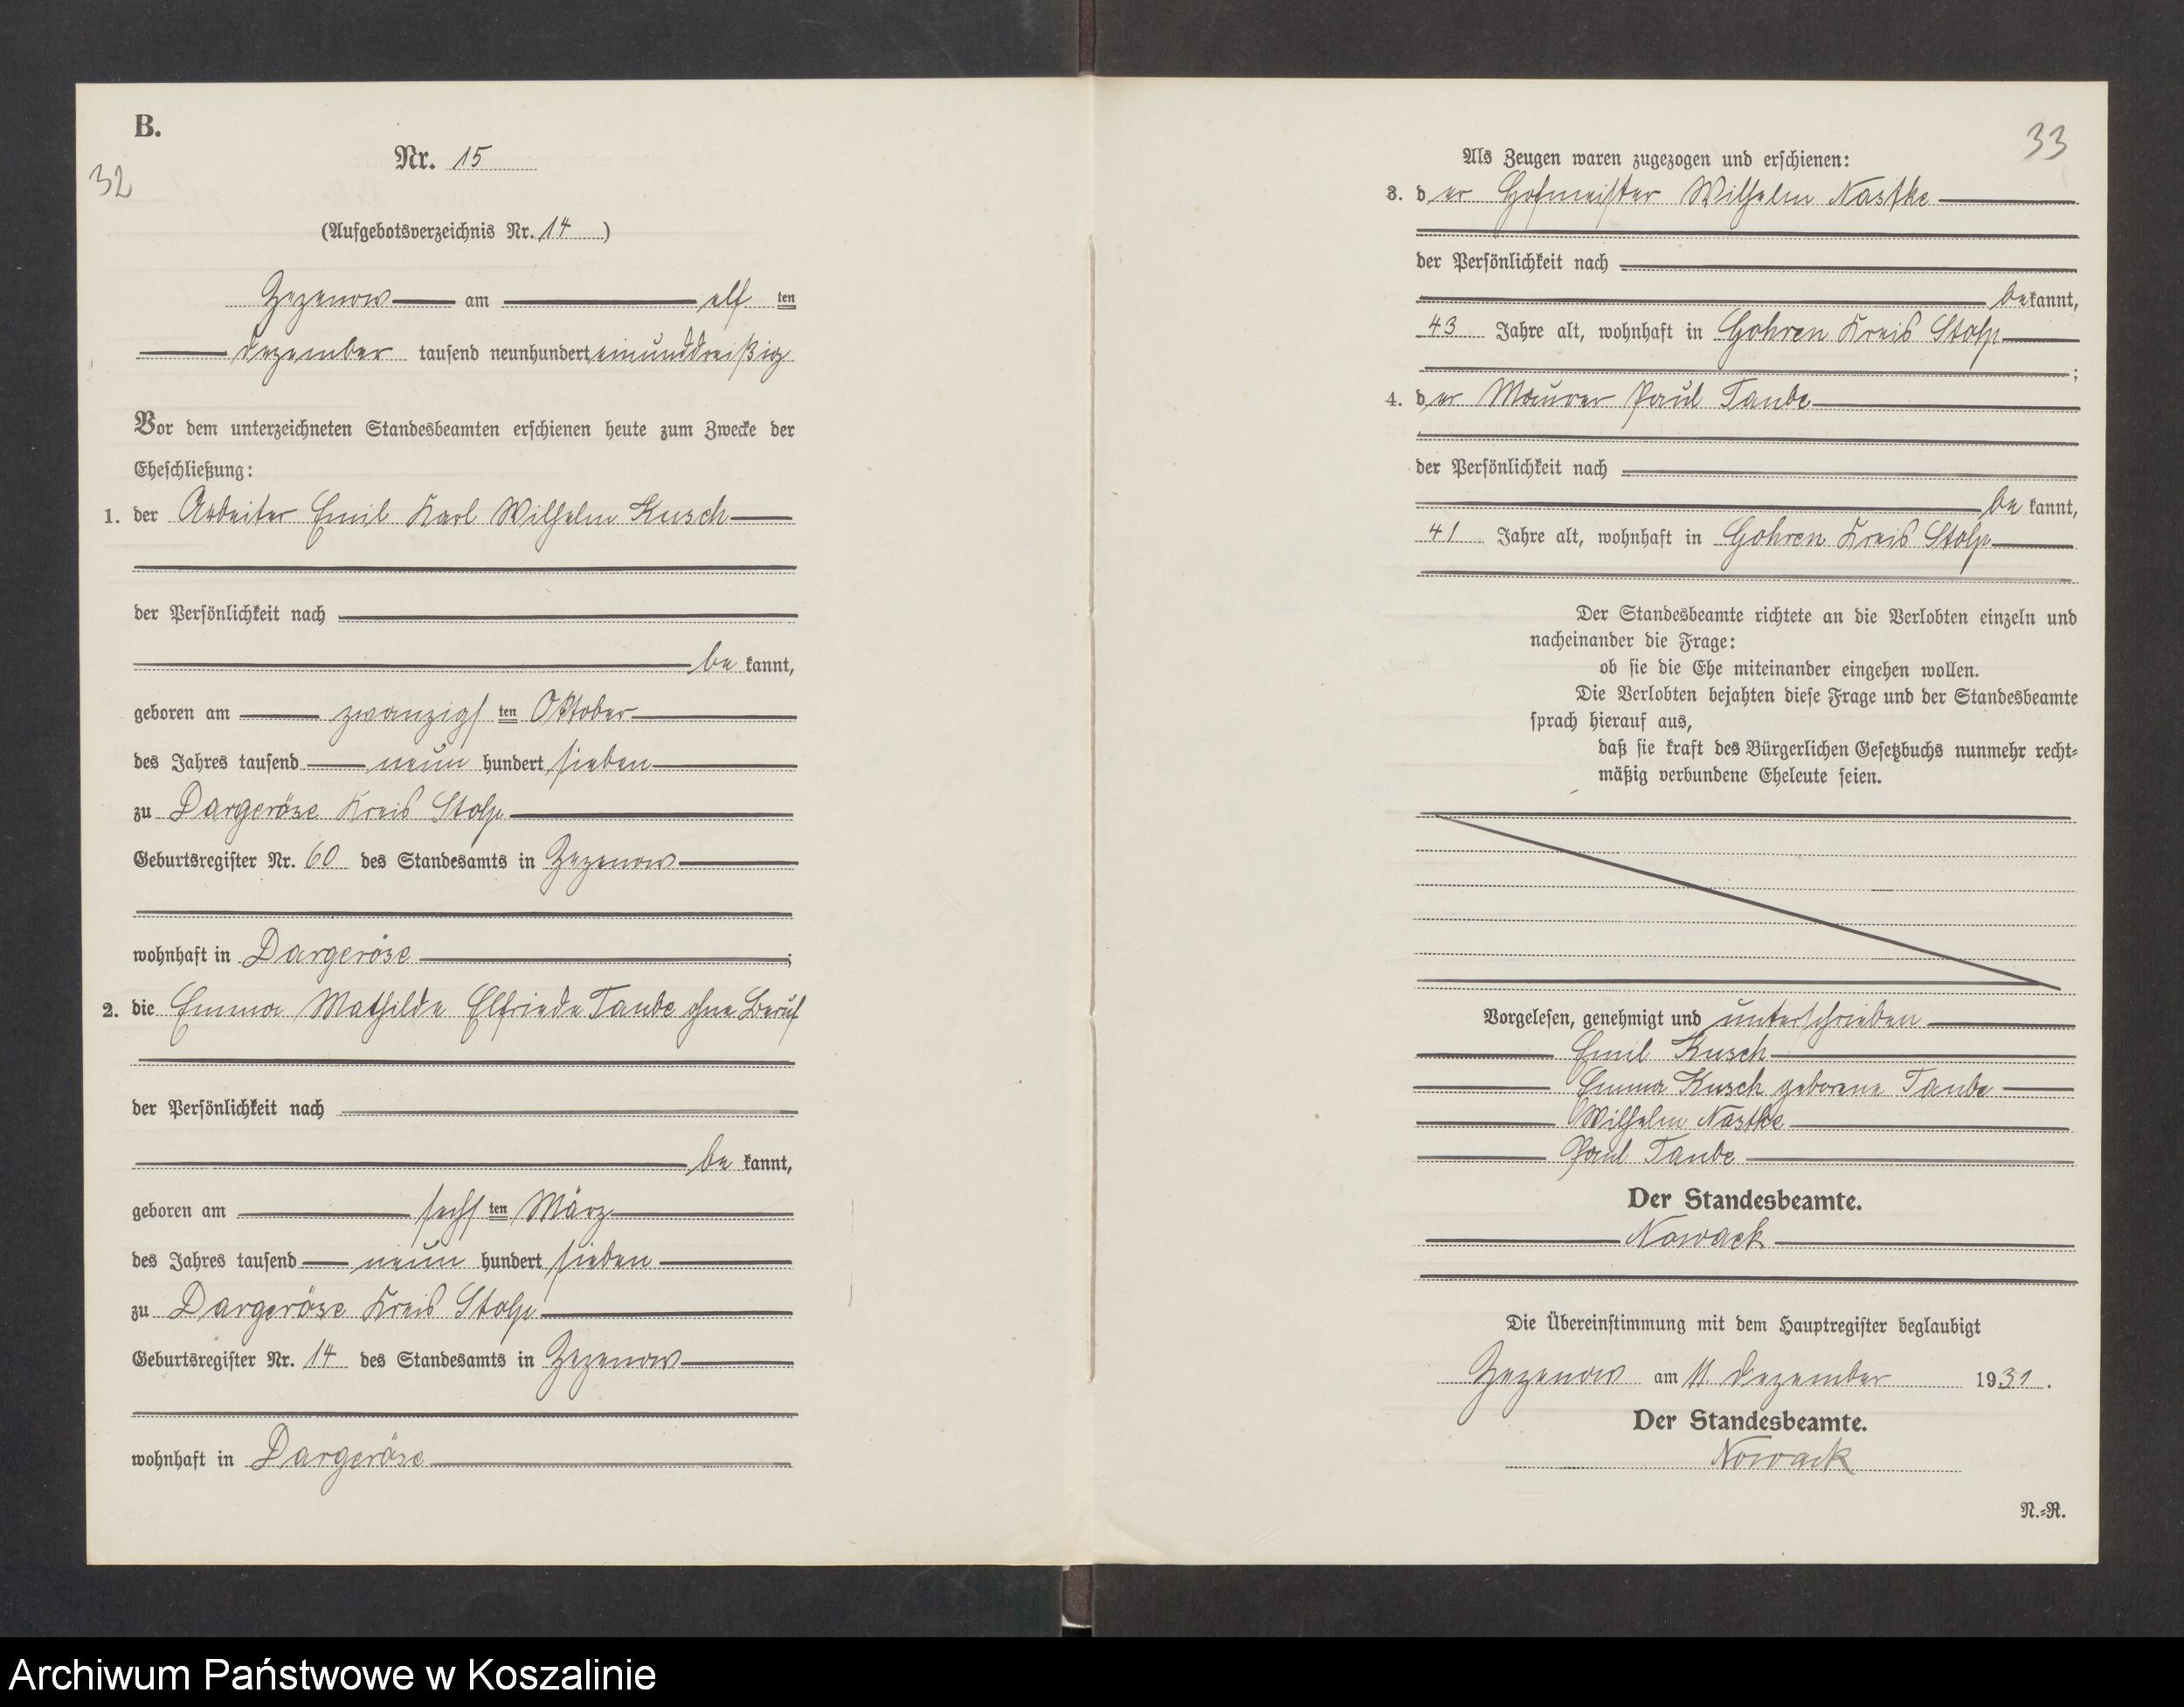 B.
32
Nr. 15
(Aufgebotsverzeichnis Nr. 14)
Zezenow am elf ten
Dezember tausend neunhundert einunddreißig
Vor dem unterzeichneten Standesbeamten erschienen heute zum Zwecke der
Eheschließung:
1. der Arbeiter Emil Karl Wilhelm Kusch
der Persönlichkeit nach
be kannt,
geboren am zwanzigs ten Oktober
des Jahres tausend neun hundert sieben
zu Dargeröse Kreis Stolp
Geburtsregister Nr. 60 des Standesamts in Zezenow
wohnhaft in Dargeröse ;
2. die Emma Mathilde Elfriede Taube ohne Beruf
der Persönlichkeit nach
be kannt,
geboren am sechs ten März
des Jahres tausend neun hundert sieben
zu Dargeröse Kreis Stolp
Geburtsregister Nr. 14 des Standesamts in Zezenow
wohnhaft in Dargeröse
33
Als Zeugen waren zugezogen und erschienen:
3. der Hofmeister Wilhelm Nastke
der Persönlichkeit nach
bekannt,
43 Jahre alt, wohnhaft in Gohren Kreis Stolp
;
4. der Maurer Paul Taube
der Persönlichkeit nach
be kannt,
41 Jahre alt, wohnhaft in Gohren Kreis Stolp
Der Standesbeamte richtete an die Verlobten einzeln und
nacheinander die Frage:
ob sie die Ehe miteinander eingehen wollen.
Die Verlobten bejahten diese Frage und der Standesbeamte
sprach hierauf aus,
daß sie kraft des Bürgerlichen Gesetzbuchs nunmehr recht-
mäßig verbundene Eheleute seien.
Vorgelesen, genehmigt und unterschrieben
Emil Kusch
Emma Kusch geborene Taube
Wilhelm Nastke
Paul Taube
Der Standesbeamte.
Nowack
Die Übereinstimmung mit dem Hauptregister beglaubigt
Zezenow am 11. Dezember 1931.
Der Standesbeamte.
Nowack
N.-R.
Archiwum Państwowe w Koszalinie